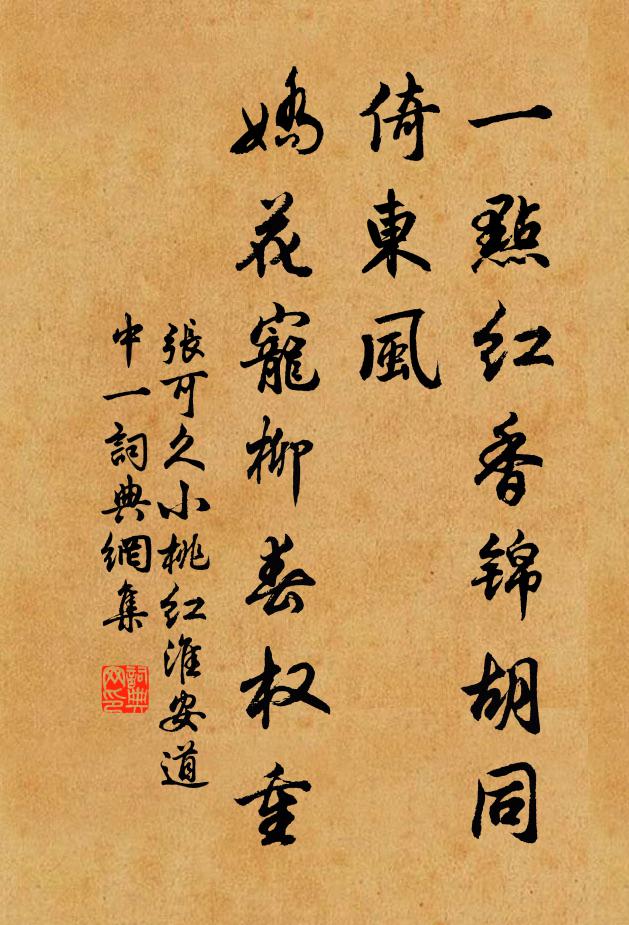 一點紅香錦胡同
倚東風
嬌花寵柳春权重
張可久小桃紅淮安道
中一詞典網集
詞典
网印